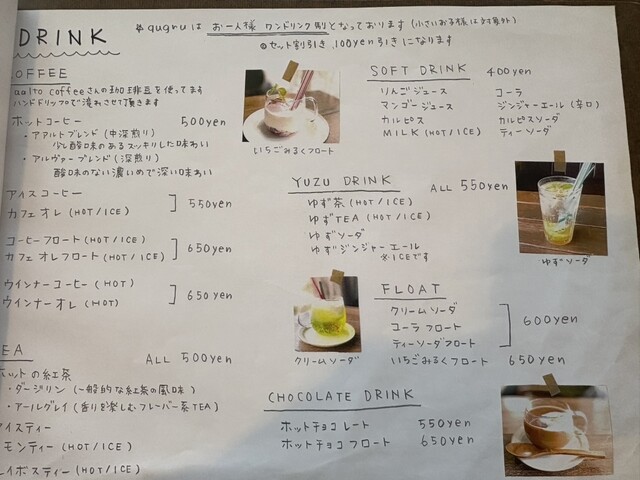 DRINK
* quqruは お一人様 ワンドリンク制となっております(小さいお子様は対象外)
◎セット割引き 100yen引きになります
OFFEE
aalto coffeeさんの珈琲豆を使ってます
ハンドドリップで淹れさせて頂きます
ホットコーヒー 500yen
・アアルトブレンド(中深煎り)
少し酸味のあるスッキリした味わい
・アルヴァーブレンド(深煎り)
酸味のない濃いめで深い味わい
アイスコーヒー
カフェオレ(HOT/ICE)
550yen
コーヒーフロート(HOT/ICE)
カフェオレフロート(HOT/ICE)
650yen
ウインナーコーヒー(HOT)
ウインナーオレ(HOT)
650yen
EA ALL 500yen
ホットの紅茶
・ダージリン(一般的な紅茶の風味)
・アールグレイ(香りを楽しむフレーバー茶TEA)
アイスティー
モンティー(HOT/ICE)
イボスティー(HOT/ICE)
いちごみるくフロート
SOFT DRINK 400yen
りんごジュース
マンゴージュース
カルピス
MILK(HOT/ICE)
コーラ
ジンジャーエール(辛口)
カルピスソーダ
ティーソーダ
YUZU DRINK ALL 550yen
ゆず茶(HOT/ICE)
ゆずTEA(HOT/ICE)
ゆずソーダ
ゆずジンジャーエール
※ICEです
ゆずソーダ
クリームソーダ
FLOAT
クリームソーダ
コーラフロート
ティーソーダフロート
600yen
いちごみるくフロート 650yen
CHOCOLATE DRINK
ホットチョコレート 550yen
ホットチョコフロート 650yen